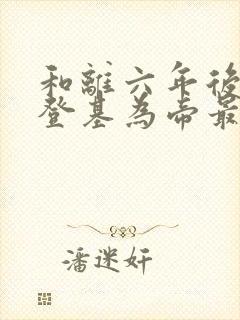 和離六年後
登基為帝最
潘迷奸